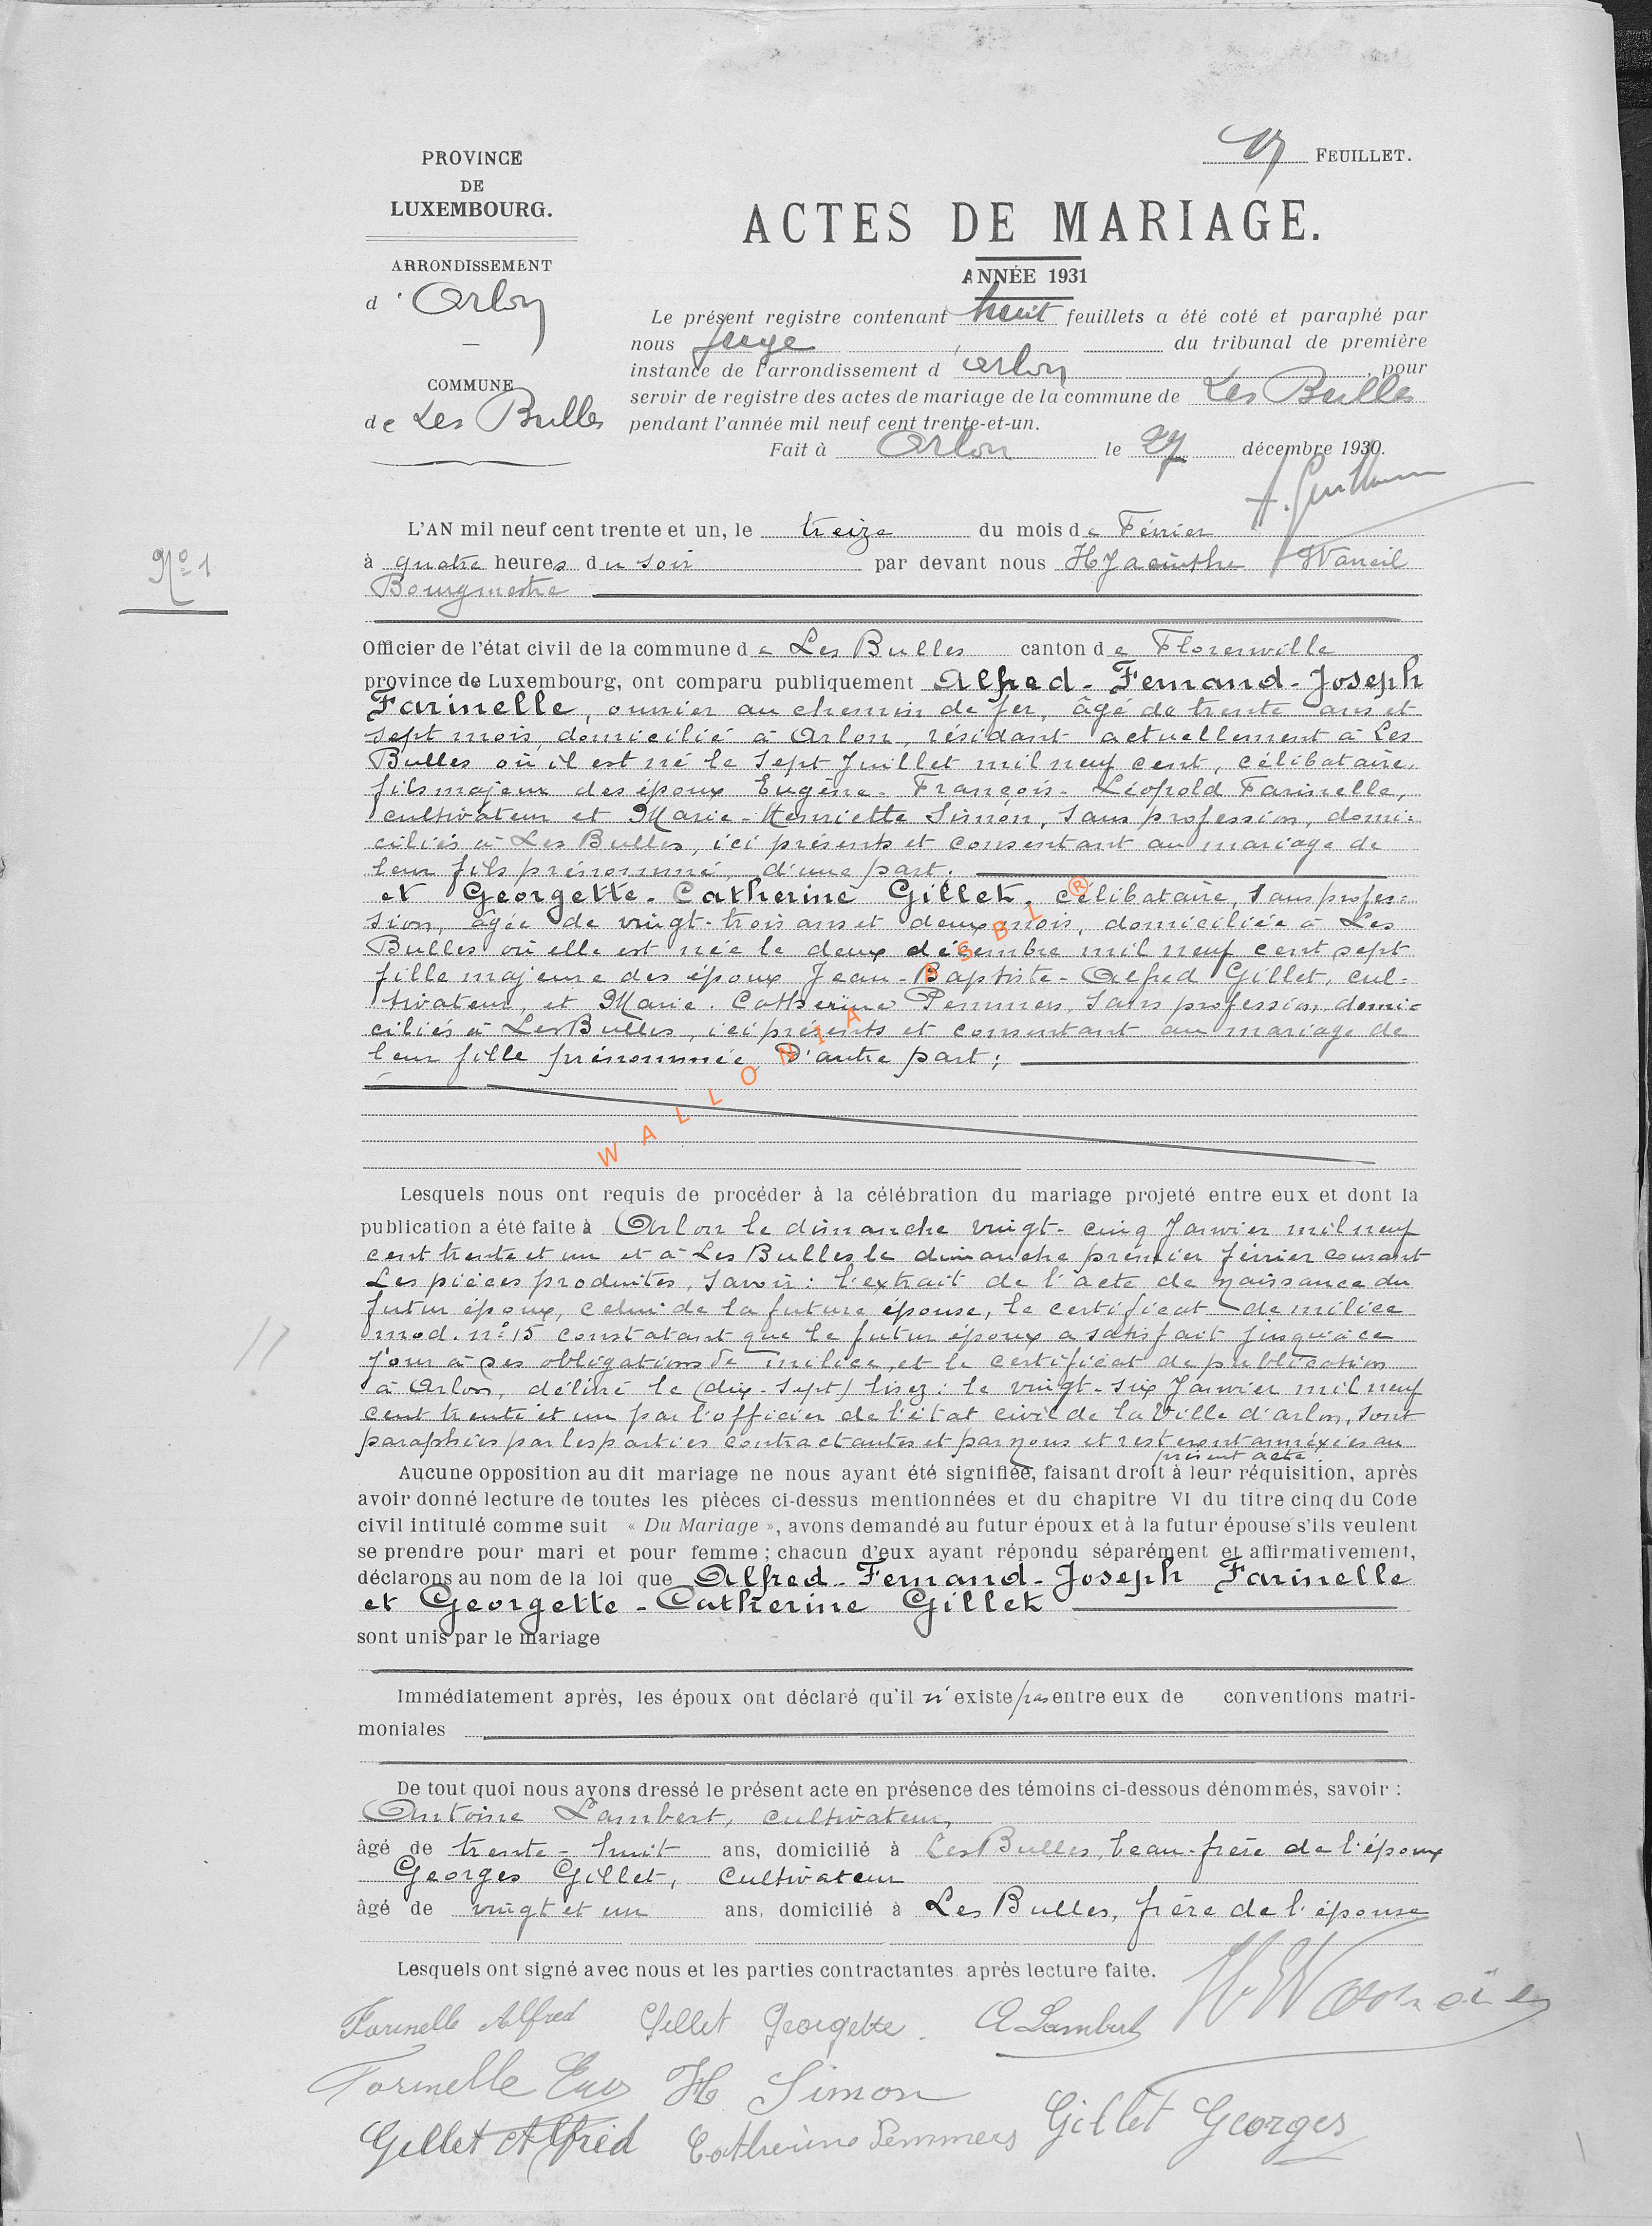 PROVINCE
DE
LUXEMBOURG.
ARRONDISSEMENT
d' Arlon
COMMUNE
de Les Bulles
FEUILLET.
ACTES DE MARIAGE.
ANNÉE 1931
Le présent registre contenant huit feuillets a été coté et paraphé par
nous Juge du tribunal de première
instance de l'arrondissement d'Arlon, pour
servir de registre des actes de mariage de la commune de Les Bulles
pendant l'année mil neuf cent trente-et-un.
Fait à Arlon le 27 décembre 1930.
No 1
L'AN mil neuf cent trente et un, le treize du mois de Février
à quatre heures du soir par devant nous Hyacinthe
Bourgmestre
Officier de l'état civil de la commune de Les Bulles canton de Florenville
province de Luxembourg, ont comparu publiquement Alfred-Fernand-Joseph
Farinelle, ouvrier au chemin de fer, âgé de trente ans et
sept mois, domicilié à Arlon, résidant actuellement à Les
Bulles où il est né le sept Juillet mil neuf cent, célibataire,
fils majeur des époux Eugène-François-Léopold Farinelle,
cultivateur et Marie-Henriette Simon, sans profession, domi=
ciliés à Les Bulles, ici présents et consentant au mariage de
leur fils prénommé, d'une part.
et Georgette-Catherine Gillet, célibataire, sans profes=
sion, âgée de vingt-trois ans et deux mois, domiciliée à Les
Bulles où elle est née le deux décembre mil neuf cent sept
fille majeure des époux Jean-Baptiste-Alfred Gillet, cul-
tivateur, et Marie-Catherine Pemmers, sans profession, domi=
ciliés à Les Bulles, ici présents et consentant au mariage de
leur fille prénommée D'autre part;
WALLONIA ASBL ®
Lesquels nous ont requis de procéder à la célébration du mariage projeté entre eux et dont la
publication a été faite à Arlon le dimanche vingt-cinq Janvier mil neuf
cent trente et un et à Les Bulles le dimanche premier février courant
Les pièces produites, savoir: l'extrait de l'acte de naissance du
futur époux, celui de la future épouse, le certificat de milice
mod. n° 15 constatant que le futur époux a satisfait jusqu'à ce
jour à ses obligations de milice, et le certificat de publication
à Arlon, délivré le (dix-sept) lisez: le vingt-six Janvier mil neuf
cent trente et un par l'officier de l'état civil de la Ville d'Arlon, sont
paraphées par les parties contractantes et par nous et resteront annexées au
présent acte.
Aucune opposition au dit mariage ne nous ayant été signifiée, faisant droit à leur réquisition, après
avoir donné lecture de toutes les pièces ci-dessus mentionnées et du chapitre VI du titre cinq du Code
civil intitulé comme suit « Du Mariage », avons demandé au futur époux et à la futur épouse s'ils veulent
se prendre pour mari et pour femme ; chacun d'eux ayant répondu séparément et affirmativement,
déclarons au nom de la loi que Alfred-Fernand-Joseph Farinelle
et Georgette-Catherine Gillet
sont unis par le mariage
Immédiatement après, les époux ont déclaré qu'il n'existe pas entre eux de conventions matri-
moniales
De tout quoi nous avons dressé le présent acte en présence des témoins ci-dessous dénommés, savoir :
Antoine Lambert, cultivateur,
âgé de trente-huit ans, domicilié à Les Bulles, beau-frère de l'époux
Georges Gillet, Cultivateur
âgé de vingt et un ans, domicilié à Les Bulles, frère de l'épouse
Lesquels ont signé avec nous et les parties contractantes après lecture faite.
Farinelle Alfred Gillet Georgette. A Lambert
Farinelle Eug H Simon
Gillet Alfred Catherine Pemmers Gillet Georges